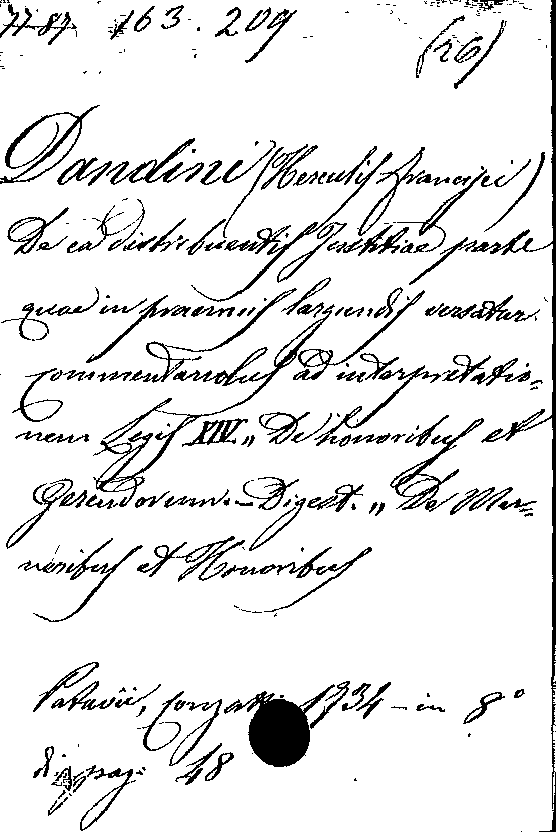 77-87 163. 209
(26)
Dandini (Herculis Francisci)
De ea distribuentis Justitiae parte
quae in praemiis largiendis versatur
commentariolus ad interpretatio=
nem Legis XIV. „ De honoribus et
Gerendorum.— Digest. „ De Mu=
neribus et Honoribus
Patavii, Conzatti 1734 — in 8°
di pag. 48